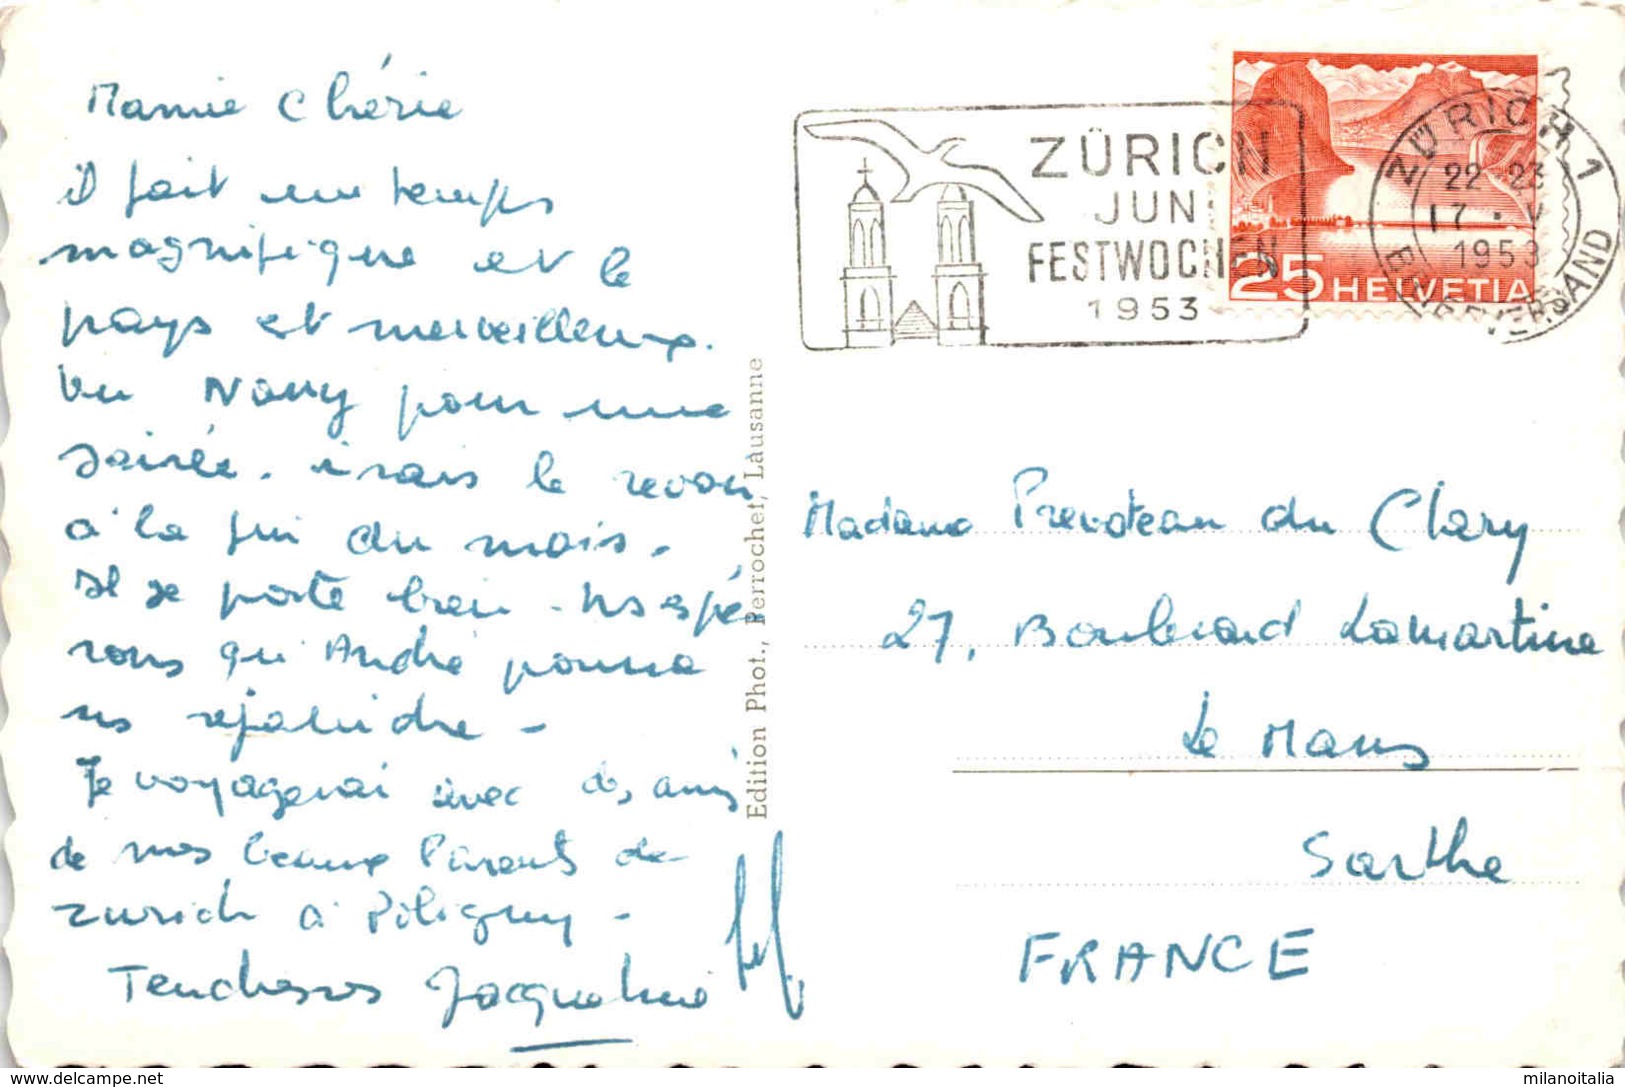 Mamie Chérie
il fait un temps
magnifique et le
pays est merveilleux.
Vu Nany pour une
soirée. irais le revoir
à la fin du mois.
Il se porte bien - ns espé
rons qu'André pourra
ns rejoindre -
Je voyagerai avec des amis
de mes beaux Parents de
zurich à Poligny -
Tendresses Jacqueline
Edition Phot., Perrochet, Lausanne
ZÜRICH
JUNI
FESTWOCHEN
1953
25 HELVETIA
ZÜRICH 1
22-23
17.V
1953
BRIEFVERSAND
Madame Prevoteau du Clary
27, Boulevard Lamartine
Le Mans
Sarthe
FRANCE
delcampe.net
milanoitalia